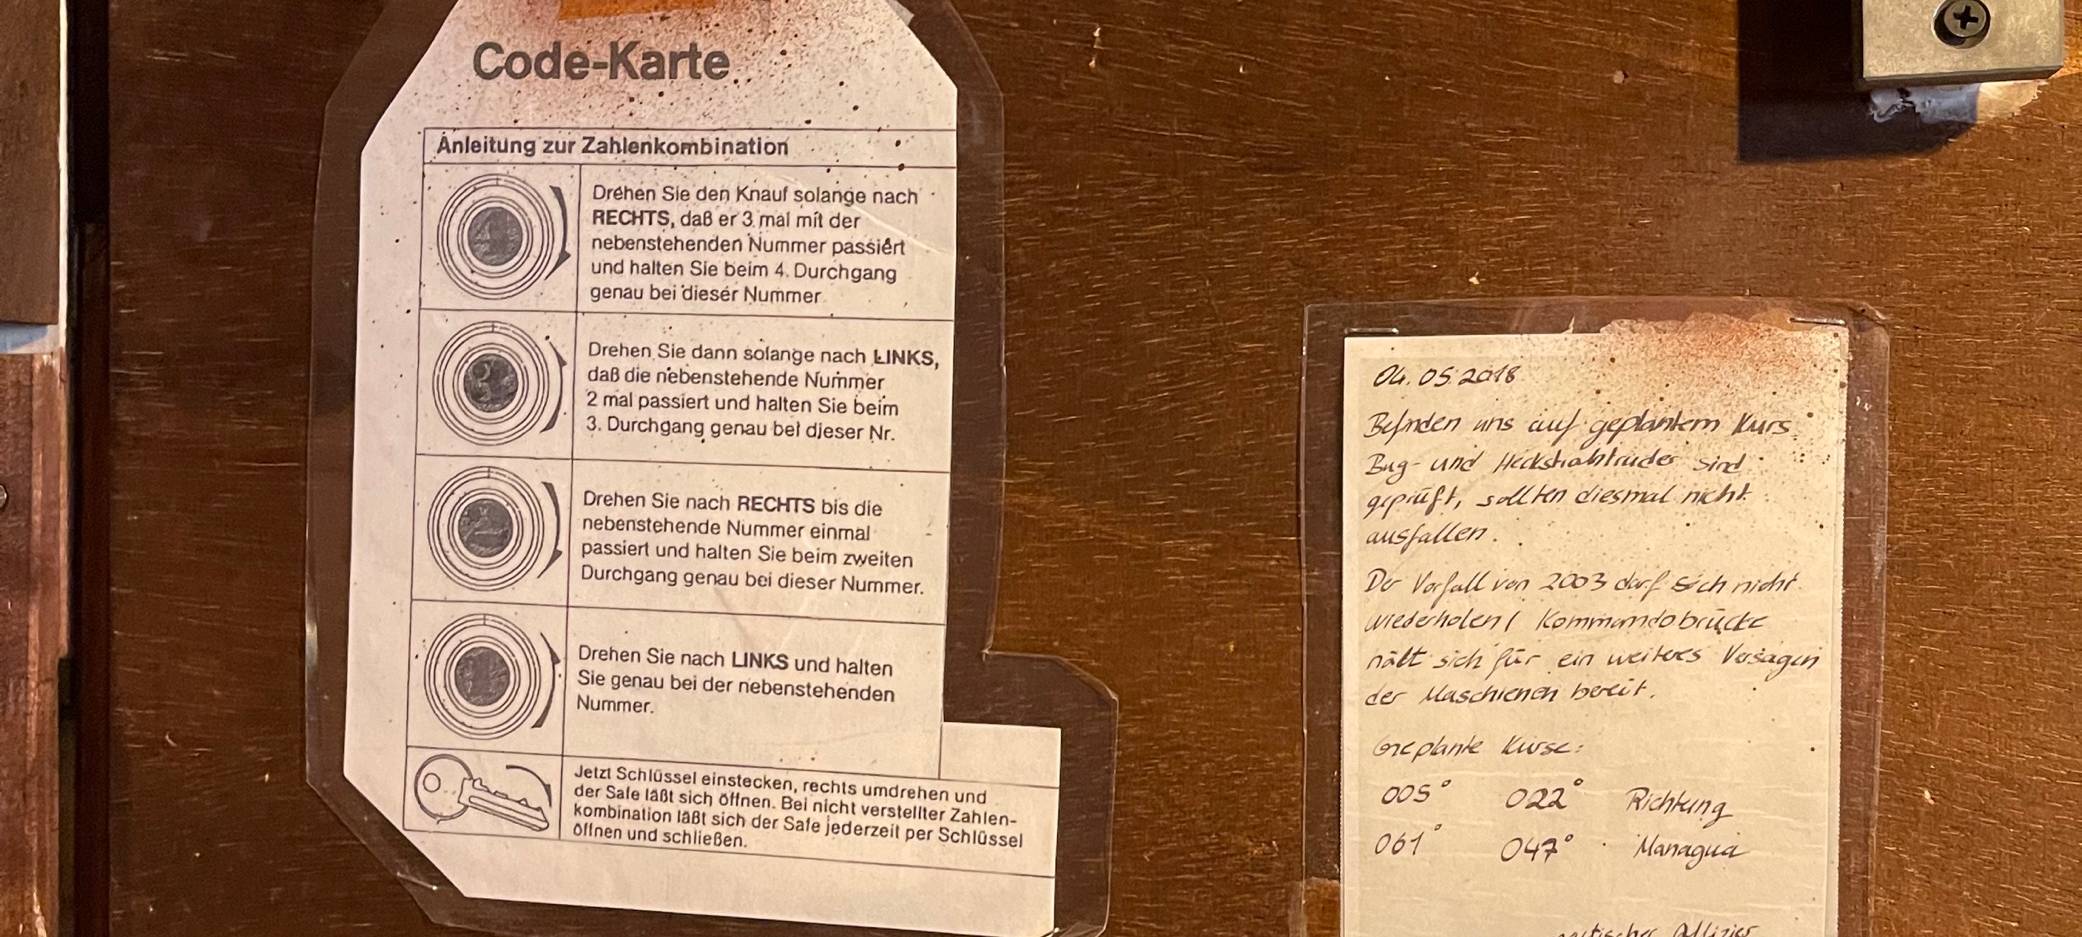 Code-Karte
Anleitung zur Zahlenkombination
Drehen Sie den Knauf solange nach
RECHTS, daß er 3 mal mit der
nebenstehenden Nummer passiert
und halten Sie beim 4. Durchgang
genau bei dieser Nummer
Drehen Sie dann solange nach LINKS,
daß die nebenstehende Nummer
2 mal passiert und halten Sie beim
3. Durchgang genau bei dieser Nr.
Drehen Sie nach RECHTS bis die
nebenstehende Nummer einmal
passiert und halten Sie beim zweiten
Durchgang genau bei dieser Nummer.
Drehen Sie nach LINKS und halten
Sie genau bei der nebenstehenden
Nummer.
Jetzt Schlüssel einstecken, rechts umdrehen und
der Safe läßt sich öffnen. Bei nicht verstellter Zahlen-
kombination läßt sich der Safe jederzeit per Schlüssel
öffnen und schließen.
04.05.2018
Befinden uns auf geplantem Kurs.
Bug- und Heckstrahlruder sind
geprüft, sollten diesmal nicht
ausfallen.
Der Vorfall von 2003 darf sich nicht
wiederholen! Kommandobrücke
hält sich für ein weiteres Versagen
der Maschienen bereit.
Geplante Kurse:
005° 022° Richtung
061° 047° Managua
Offizier